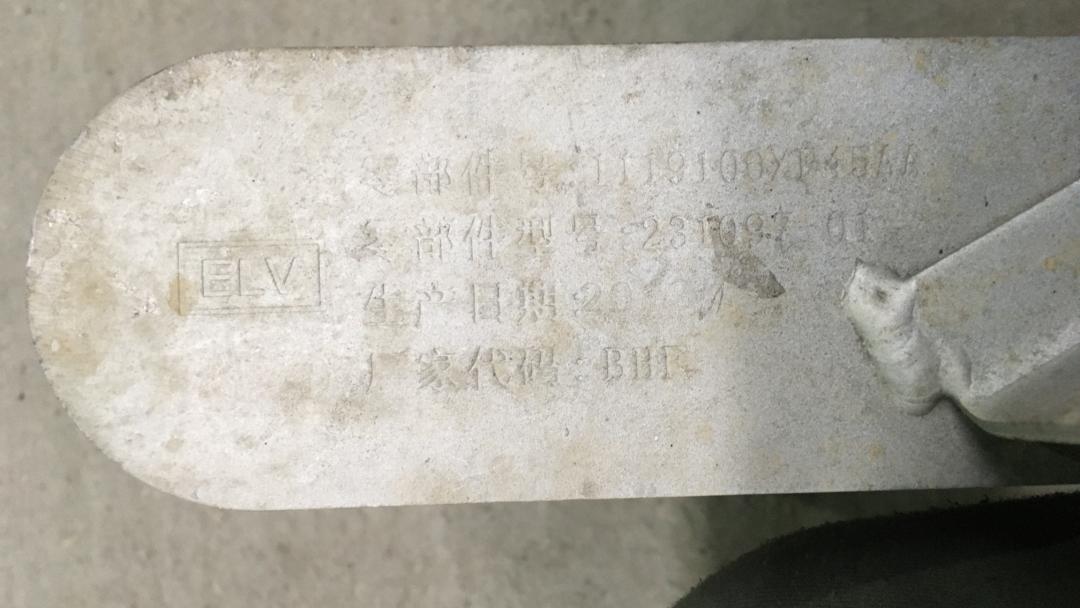 零部件号:1119100XP45AA
ELV
零部件型号:231097-01
生产日期:
厂家代码:BHF